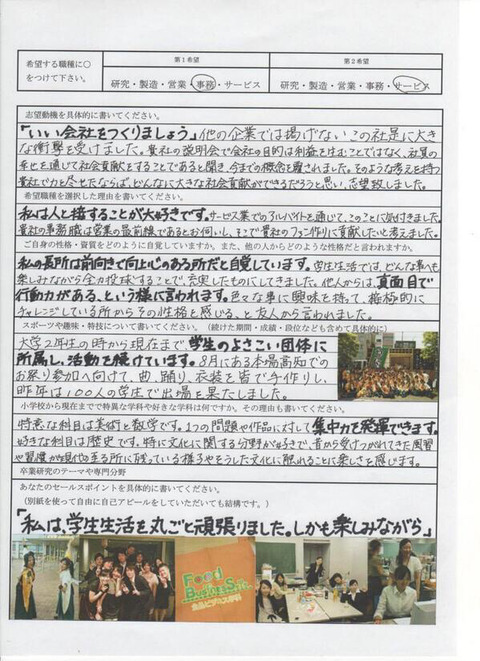 希望する職種に○をつけて下さい。
第1希望
第2希望
研究・製造・営業・事務・サービス
研究・製造・営業・事務・サービス
志望動機を具体的に書いてください。
「いい会社をつくりましょう」他の企業では掲げないこの社是に大き
な衝撃を受けました。貴社の説明会で会社の目的は利益を生むことではなく、社員の
幸せを通じて社会貢献をすることであると聞き、今までの概念を覆されました。そのような考えを持つ
貴社で力を尽せたならば、どんなに大きな社会貢献ができるだろうと思い、志望致しました。
希望職種を選択した理由を書いてください。
私は人と接することが大好きです。サービス業でのアルバイトを通じて、このことに気付きました。
貴社の事務職は営業の最前線であるとお伺いし、そこで貴社のファン作りに貢献したいと考えました。
ご自身の性格・資質をどのように自覚していますか。また、他の人からどのような性格だと言われますか。
私の長所は前向きで向上心のある所だと自覚しています。学生生活では、どんな事へも
楽しみながら全力投球することで、充実したものにしてきました。他人からは、真面目で
行動力がある、という様に言われます。色々な事に興味を持って、積極的に
チャレンジしている所からその性格を感じる、と友人から言われました。
スポーツや趣味・特技について書いてください。(続けた期間・成績・段位なども含めて具体的に)
大学2年生の時から現在まで、学生のよさこい団体に
所属し、活動を続けています。8月にある本場高知での
お祭り参加へ向けて、曲、踊り、衣装を皆で手作りし、
昨年は100人の学生で出場を果たしました。
小学校から現在までで得意な学科や好きな学科は何ですか。その理由も書いてください。
得意な科目は美術と数学です。1つの問題や作品に対して集中力を発揮できます。
好きな科目は歴史です。特に文化に関する分野が好きで、昔から受けつがれてきた風習
や習慣が現代の至る所に残っている様子やそうした文化に触れることに楽しさを感じます。
卒業研究のテーマや専門分野
あなたのセールスポイントを具体的に書いてください。
(別紙を使って自由に自己アピールをしていただいても結構です。)
「私は、学生生活を丸ごと頑張りました。しかも楽しみながら」
Food
Business
食品ビジネス学科